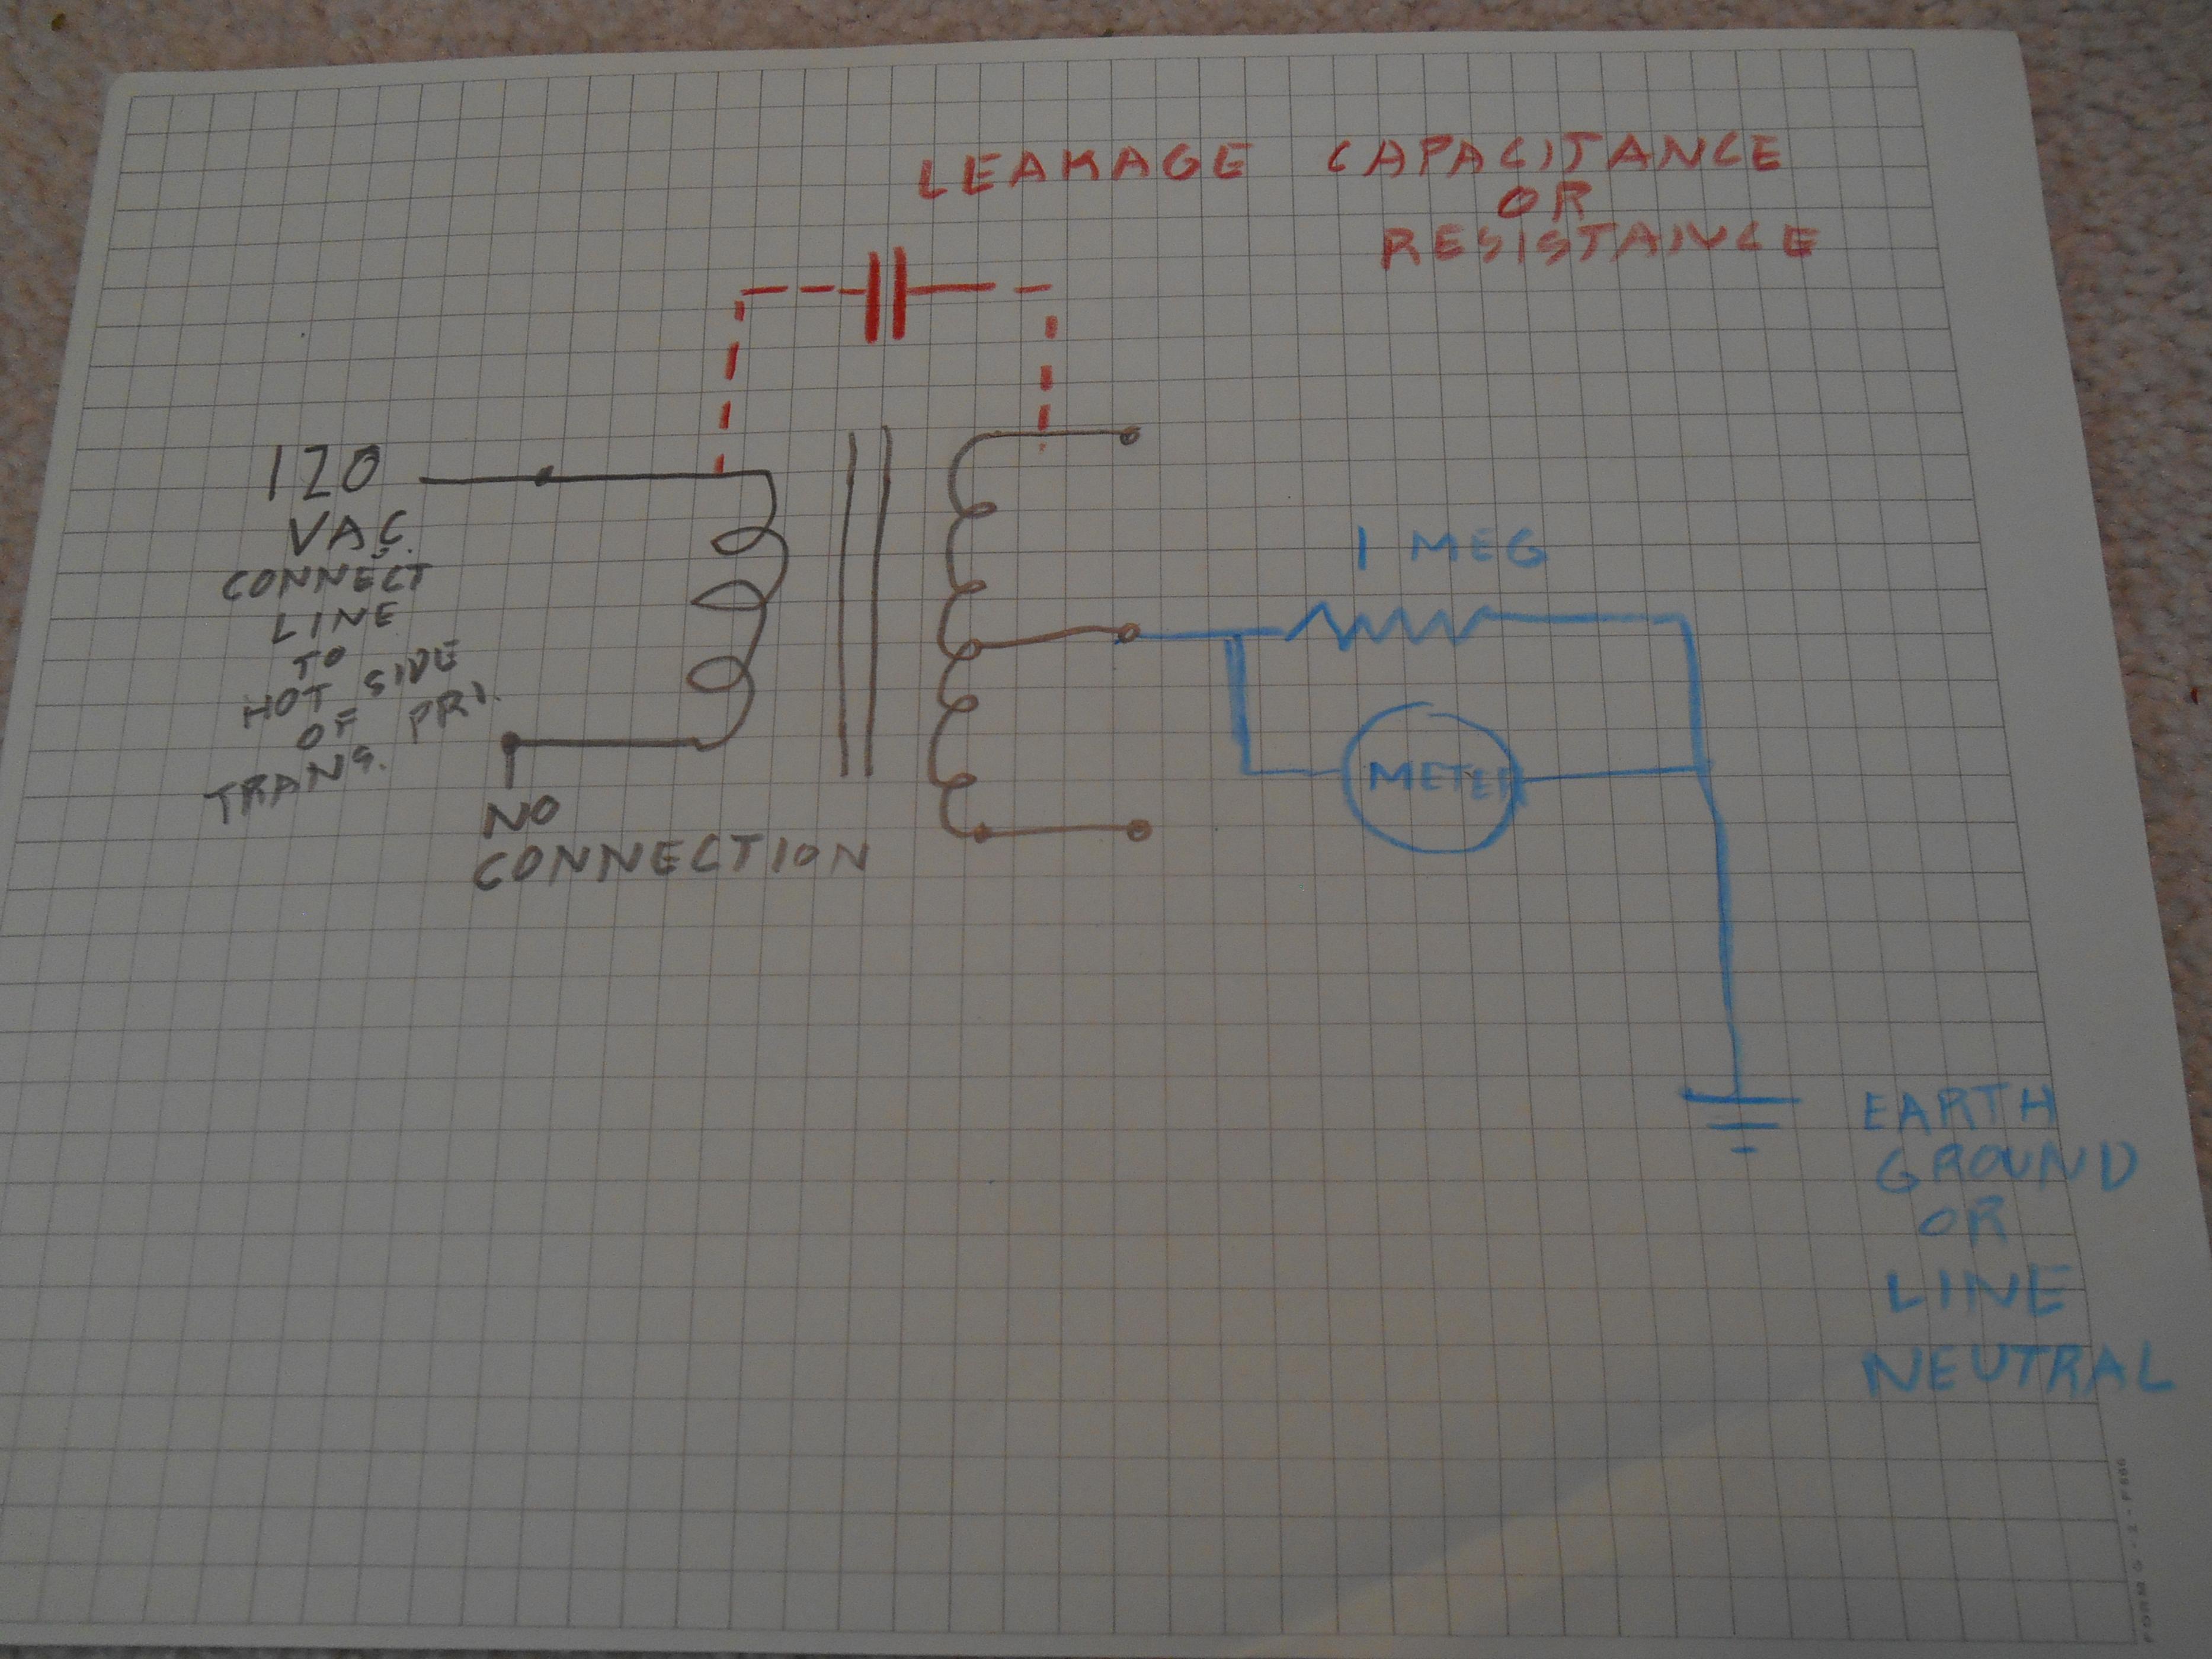 LEAKAGE CAPACITANCE
OR
RESISTANCE
120
VAC.
CONNECT
LINE
TO
HOT SIDE
OF PRI.
TRANS.
NO
CONNECTION
1 MEG
METER
EARTH
GROUND
OR
LINE
NEUTRAL